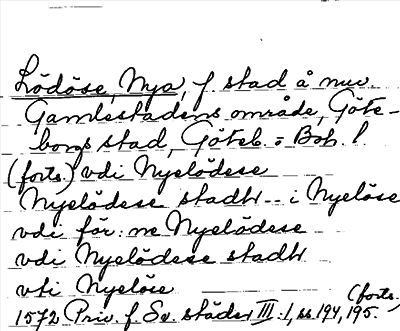 Lödöse, Nya, f. stad å nuv.
Gamlestadens område, Göte-
borgs stad, Göteb. o Boh. l.
(forts.) vdi Nyelödese
Nyelödese stadh .. i Nyelöse
vdi för:ne Nyelödese
vdi Nyelödese stadh
vti Nyelöse
(forts.)
1572 Priv. f. Sv. städer III:1, ss. 194, 195.